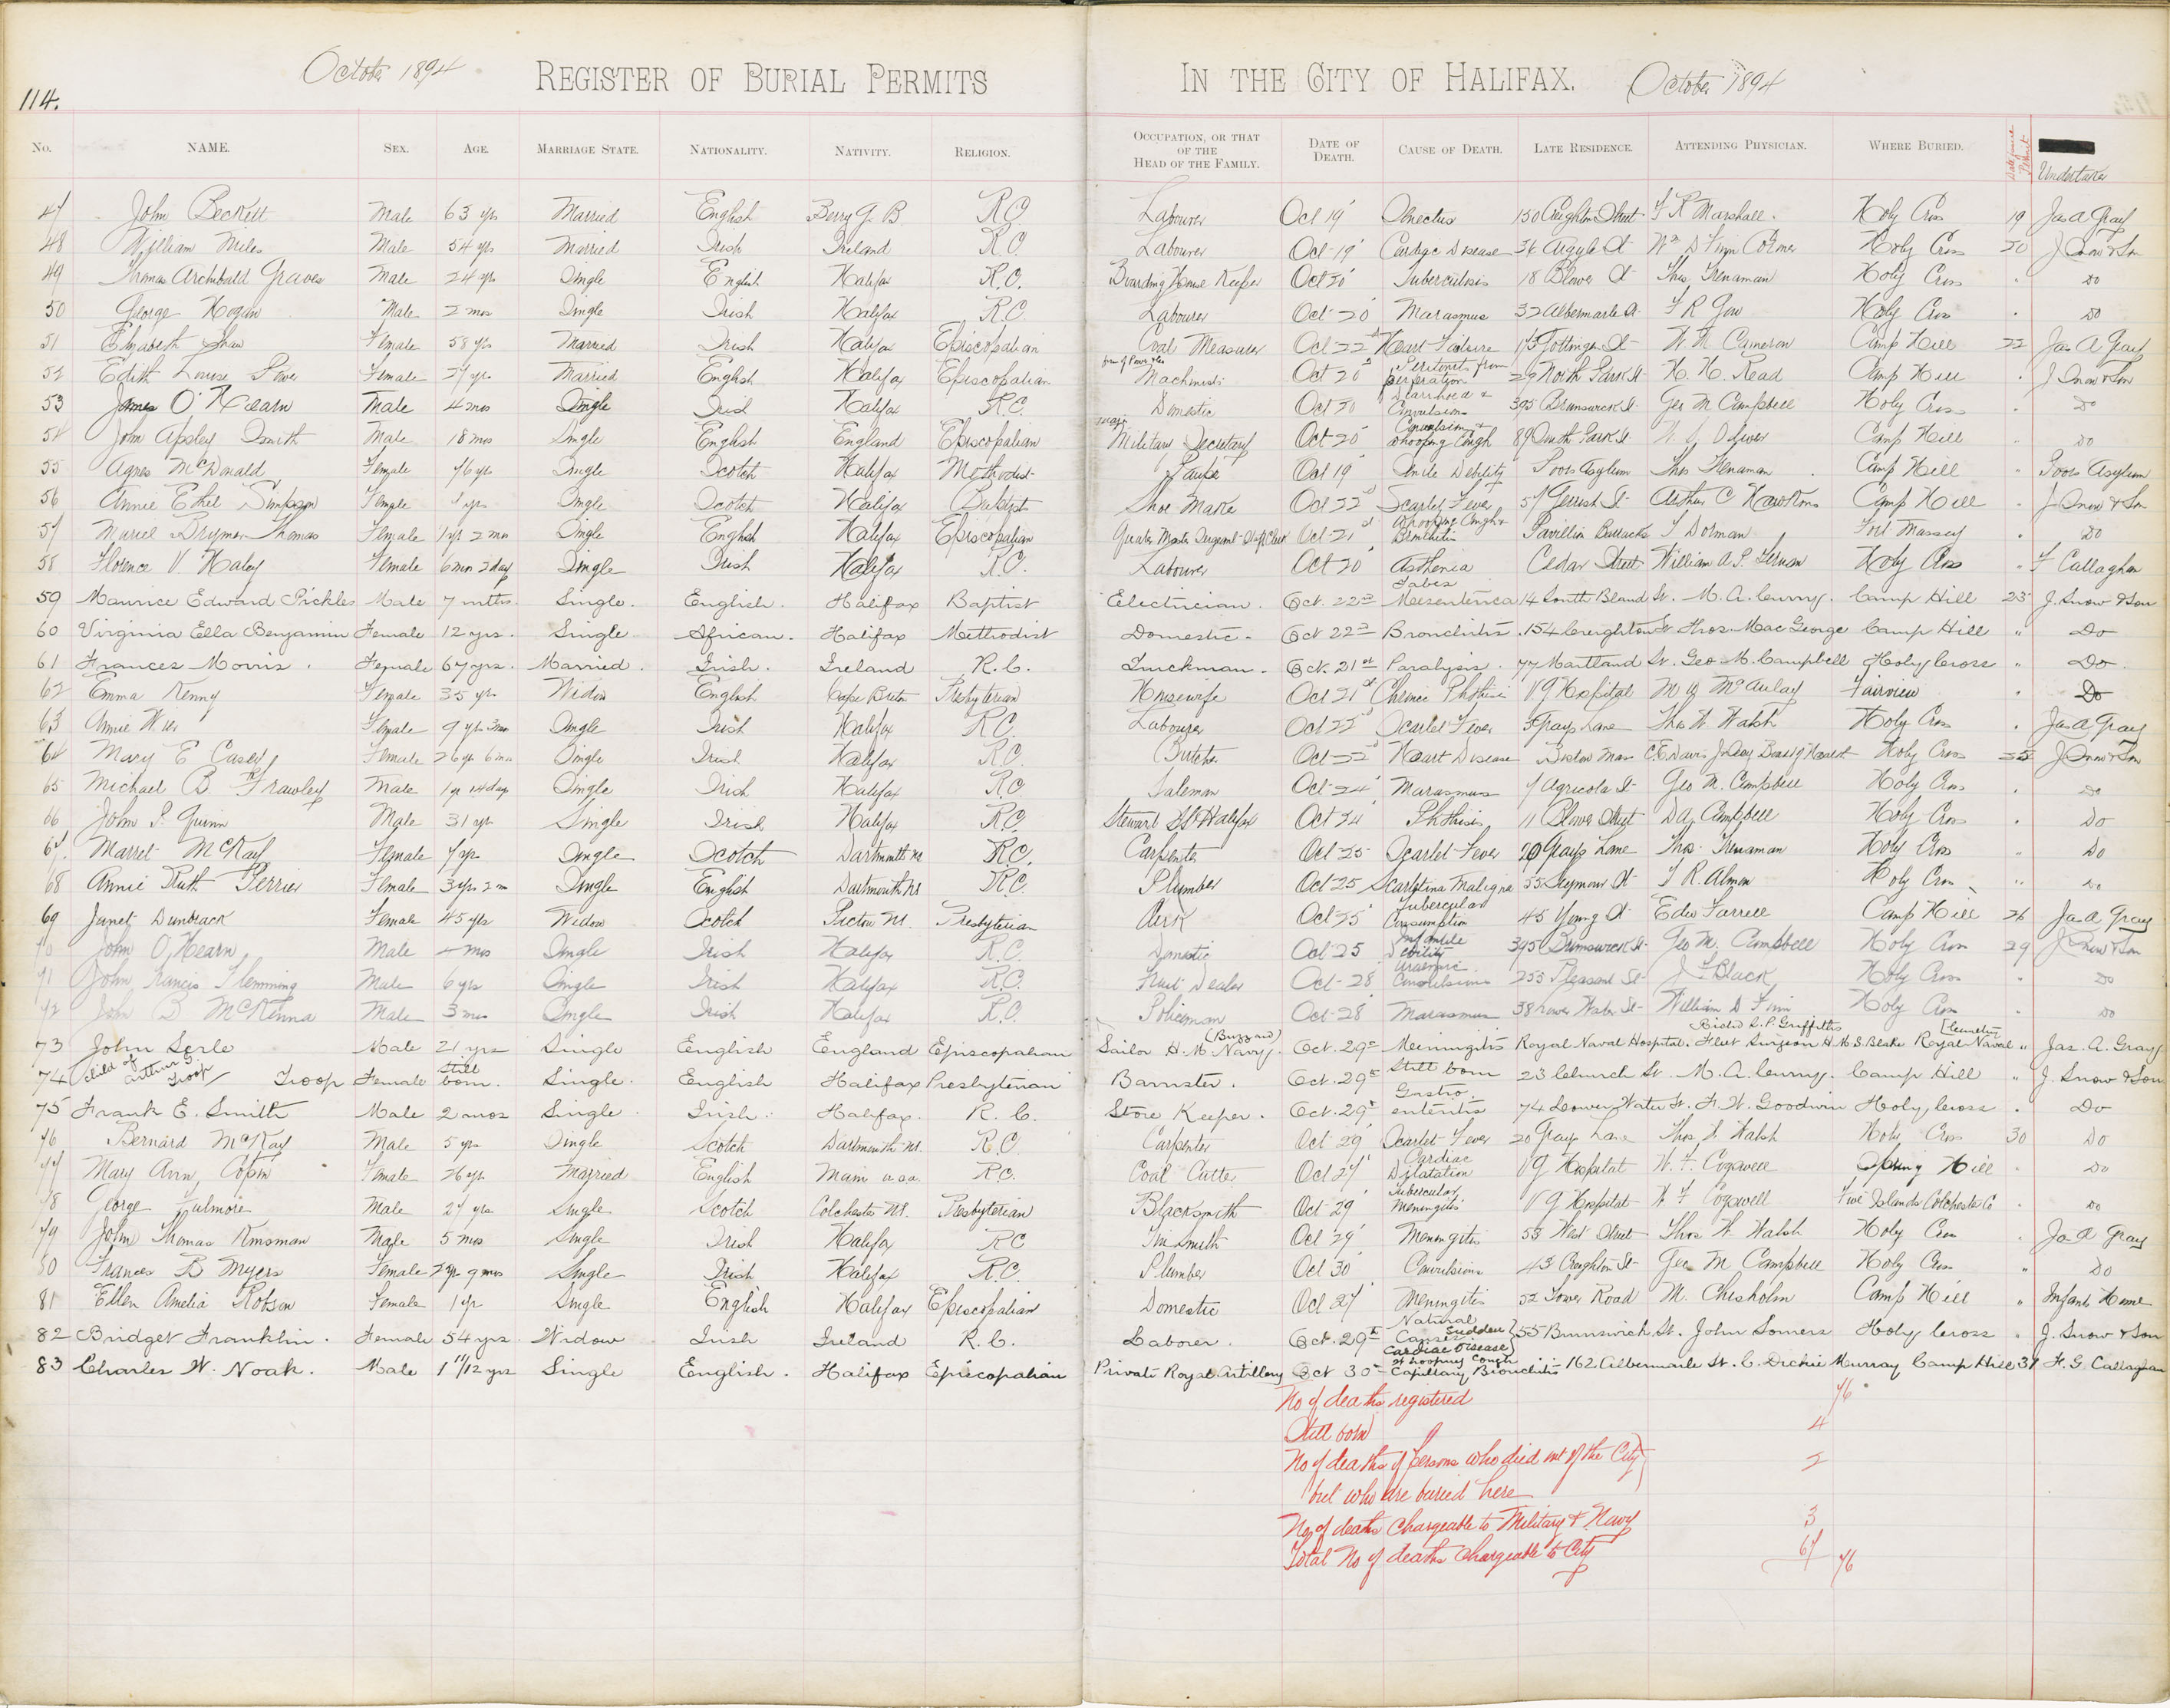 114.
October 1894 REGISTER OF BURIAL PERMITS IN THE CITY OF HALIFAX. October 1894
No. NAME. SEX. AGE. MARRIAGE STATE. NATIONALITY. NATIVITY. RELIGION. OCCUPATION, OR THAT OF THE HEAD OF THE FAMILY. DATE OF DEATH. CAUSE OF DEATH. LATE RESIDENCE. ATTENDING PHYSICIAN. WHERE BURIED. Undertaker
47 John Beckett Male 63 yrs Married English R.C. Labourer Oct 19 150 Creighton Street Marshall Holy Cross 19 Jas A Gray
48 William Miles Male 54 yrs Married Irish Ireland R.C. Labourer Oct 19 Cardiac Disease 36 Argyle St Wm D Finn Holy Cross 20 J Snow & Son
49 Thomas Archibald Graves Male 24 yrs Single English Halifax R.C. Boarding House Keeper Oct 20 Tuberculosis 18 Blower St Thos Trenaman Holy Cross " Do
50 George Hogan Male 2 mos Single Irish Halifax R.C. Labourer Oct 20 Marasmus 32 Albermarle St Holy Cross " Do
51 Elizabeth Shaw Female 58 yrs Married Irish Halifax Episcopalian Coal Measurer Oct 22d Heart Failure Gottingen St Cameron Camp Hill 22 Jas A Gray
52 Edith Louise Power Female 27 yrs Married English Halifax Episcopalian Machinist Oct 20 Peritonitis from perforation 29 North Park St H. H. Read Camp Hill " J Snow & Son
53 James O'Hearn Male 4 mos Single Irish Halifax R.C. Domestic Oct 20 Diarrhoea & Convulsions 395 Brunswick St Geo M Campbell Holy Cross " Do
54 John Apsley Smith Male 18 mos Single English England Episcopalian Military Secretary Oct 20 Convulsions & whooping Cough 89 South Park St Camp Hill " Do
55 Agnes McDonald Female 76 yrs Single Scotch Halifax Methodist Oct 19 Senile Debility Poors Asylum Thos Trenaman Camp Hill " Poors Asylum
56 Annie Ethel Simpson Female yrs Single Scotch Halifax Baptist Shoe Maker Oct 22d Scarlet Fever 57 Gerrish St Arthur C Hawkins Camp Hill " J Snow & Son
57 Thomas Female 1 yr 2 mos Single English Halifax Episcopalian Quarter Master Sergeant Oct 21st Whooping Cough & Bronchitis Pavillion Barracks Dorman Fort Massey " Do
58 Florence V. Haley Female 6 mos 2 days Single Irish Halifax R.C. Labourer Oct 20 Asthenia Cedar Street William Holy Cross " F Callaghan
59 Maurice Edward Pickles Male 7 mths Single. English. Halifax Baptist Electrician. Oct. 22nd Tabes Meisenterica 14 South Bland St. M. A. Curry. Camp Hill 23 J. Snow & Son
60 Virginia Ella Benjamin Female 12 yrs. Single African. Halifax Methodist Domestic. Oct 22nd Bronchitis. 154 Creighton St. Thos. MacGeorge Camp Hill " Do
61 Frances Morris. Female 67 yrs. Married. Irish. Ireland R.C. Truckman. Oct. 21st Paralysis. 77 Maitland St. Geo M. Campbell Holy Cross " Do.
62 Emma Kenny Female 35 yrs Widow English Cape Breton Presbyterian Housewife Oct 21st Chronic Phthisis V G Hospital McAulay Fairview " Do
63 Annie Female 9 yrs 3 mos Single Irish Halifax R.C. Labourer Oct 22d Scarlet Fever Grays Lane Thos W Walsh Holy Cross " Jas A Gray
64 Mary E Casey Female 26 yrs 6 mos Single Irish Halifax R.C. Butcher Oct 22d Heart Disease Boston Mass C. E. Davis Jr Secy Board of Health Holy Cross 25 J Snow & Son
65 Michael B. Frawley Male 1 yr 14 days Single Irish Halifax R.C. Saleman Oct 24 Marasmus 7 Agricola St Geo M. Campbell Holy Cross " Do
66 John P. Quinn Male 31 yrs Single Irish Halifax R.C. Stewart SS Halifax Oct 24 Phthisis 11 Blower Street D A Campbell Holy Cross " Do
67 McKay Female 7 yrs Single Scotch Dartmouth NS R.C. Carpenter Oct 25 Scarlet Fever 20 Grays Lane Thos Trenaman Holy Cross " Do
68 Annie Ruth Perrier Female 3 yrs 2 m Single English Dartmouth NS R.C. Plumber Oct 25 Scarlatina Maligna 55 Seymour St Almon Holy Cross " Do
69 Janet Dunbrack Female 45 yrs Widow Scotch Pictou NS. Presbyterian Clerk Oct 25 Tubercular Consumption 45 Young St Edw Farrell Camp Hill 26 Jas A Gray
70 John O'Hearn Male 4 mos Single Irish Halifax R.C. Domestic Oct 25 Infantile Debility 395 Brunswick St Geo M. Campbell Holy Cross 29 J Snow & Son
71 John Francis Flemming Male 6 yrs Single Irish Halifax R.C. Fruit Dealer Oct 28 Uraemic Convulsions 253 Pleasant St J F Black Holy Cross " Do
72 John D McKenna Male 3 mos Single Irish Halifax R.C. Policeman Oct 28 Marasmus 38 Lower Water St William D Finn Holy Cross " Do
73 John Serle Male 21 yrs Single English England Episcopalian Sailor H. M. Navy. (Buzzard) Oct. 29th Meiningitis Royal Naval Hospital. Griffiths Fleet Surgeon H. M. S. Blake Royal Naval Cemetery " Jas. A. Gray
74 Child of Arthur G. Troop Troop Female Still born. Single. English Halifax Presbyterian Barrister. Oct. 29th Still born 23 Church St. M. A. Curry. Camp Hill " J. Snow & Son
75 Frank E. Smith Male 2 mos Single. Irish. Halifax. R. C. Store Keeper. Oct. 29th Gastro-enteritis 74 Lower Water St. F. W. Goodwin Holy Cross " Do
76 Bernard McKay Male 5 yrs Single Scotch Dartmouth NS. R.C. Carpenter Oct 29 Scarlet Fever 20 Grays Lane Thos W Walsh Holy Cross 30 Do
77 Mary Ann Female 26 yrs Married English R.C. Coal Cutter Oct 27 Cardiac Dilatation V G Hospital W. F. Cogswell Spring Hill " Do
78 George Fulmore Male 27 yrs Single Scotch Colchester NS. Presbyterian Blacksmith Oct 29 Tubercular Meningitis. V G Hospital W F Cogswell Five Islands Colchester Co " Do
79 John Thomas Kinsman Male 5 mos Single Irish Halifax RC Tin Smith Oct 29 Meningitis 53 West Street Thos W Walsh Holy Cross " Jas A Gray
80 Frances B Myers Female 2 yrs 9 mos Single Irish Halifax R.C. Plumber Oct 30 Convulsions 43 Creighton St Geo M Campbell Holy Cross " Do
81 Ellen Amelia Robson Female 1 yr Single English Halifax Episcopalian Domestic Oct 27 Meningitis 52 Tower Road M. Chisholm Camp Hill " Infants Home
82 Bridget Franklin. Female 54 yrs. Widow Irish Ireland R. C. Laborer. Oct. 29th Natural Causes Sudden Cardiac Disease 55 Brunswick St. John Somers Holy Cross " J. Snow & Son
83 Charles W. Noak. Male 1 11/12 yrs Single English. Halifax Episcopalian Private Royal Artillery Oct 30th Whooping Cough Capillary Bronchitis 162 Albermarle St. C. Dickie Murray Camp Hill 31 F. G. Callaghan
No of deaths registered 76
Still born 4
No of deaths of persons who died out of the City
but who are buried here 2
No of deaths Chargeable to Military & Navy 3
Total No of deaths Chargeable to City 67 76